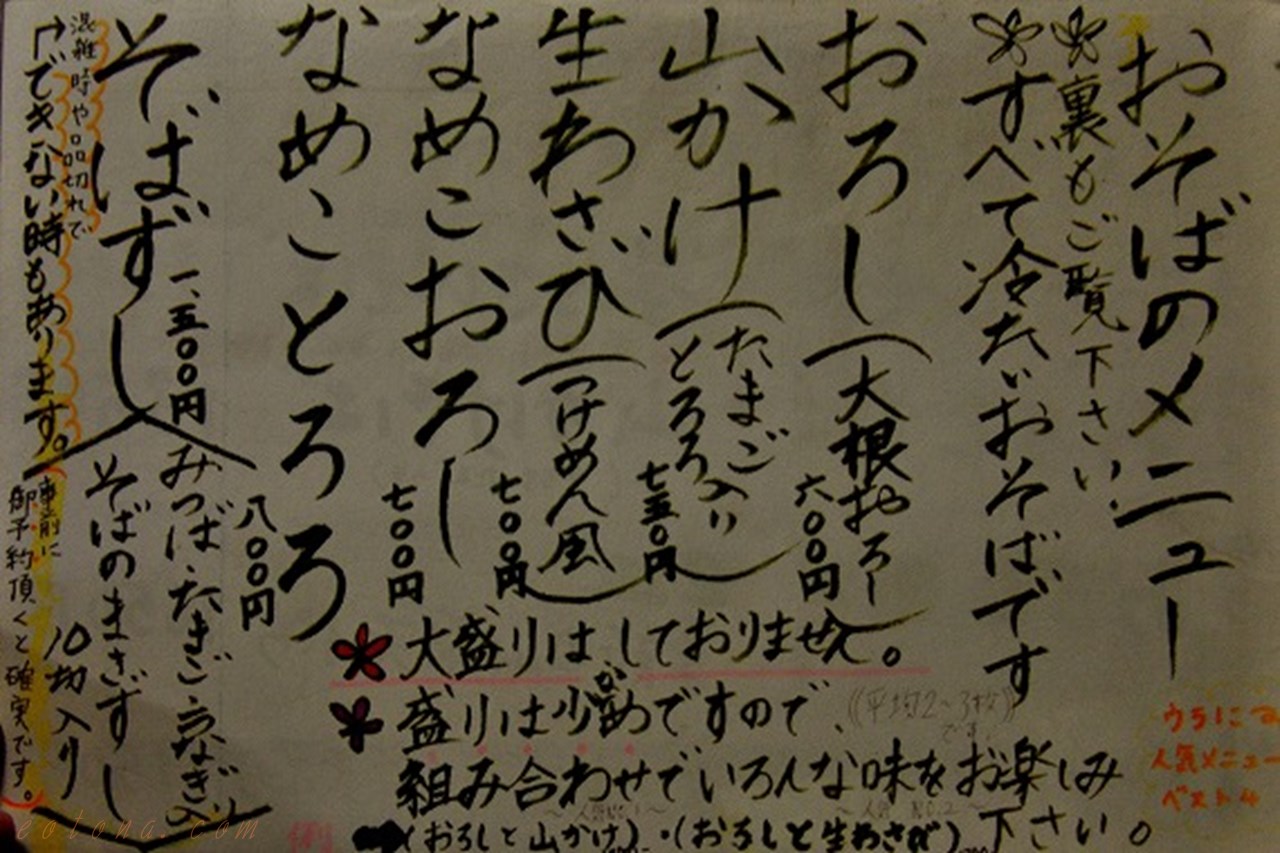 おそばのメニュー
裏もご覧下さい
すべて冷たいおそばです
おろし(大根おろし) 六〇〇円
山かけ(たまご とろろ入り) 七五〇円
生わさび(つけめん風) 七〇〇円
なめこおろし 七〇〇円
なめことろろ 八〇〇円
そばずし 一、五〇〇円
みつば・たまご・うなぎ入り
そばのまきずし
10切入り
混雑時や品切れで
できない時もあります。
事前に
御予約頂くと確実です。
大盛りは しておりません。
盛りは少なめですので、
((平均2〜3枚))
です
組み合わせでいろんな味をお楽しみ
下さい。
例
(おろしと山かけ)・(おろしと生わさび)
ウラに
人気メニュー
ベスト4
eotona.com